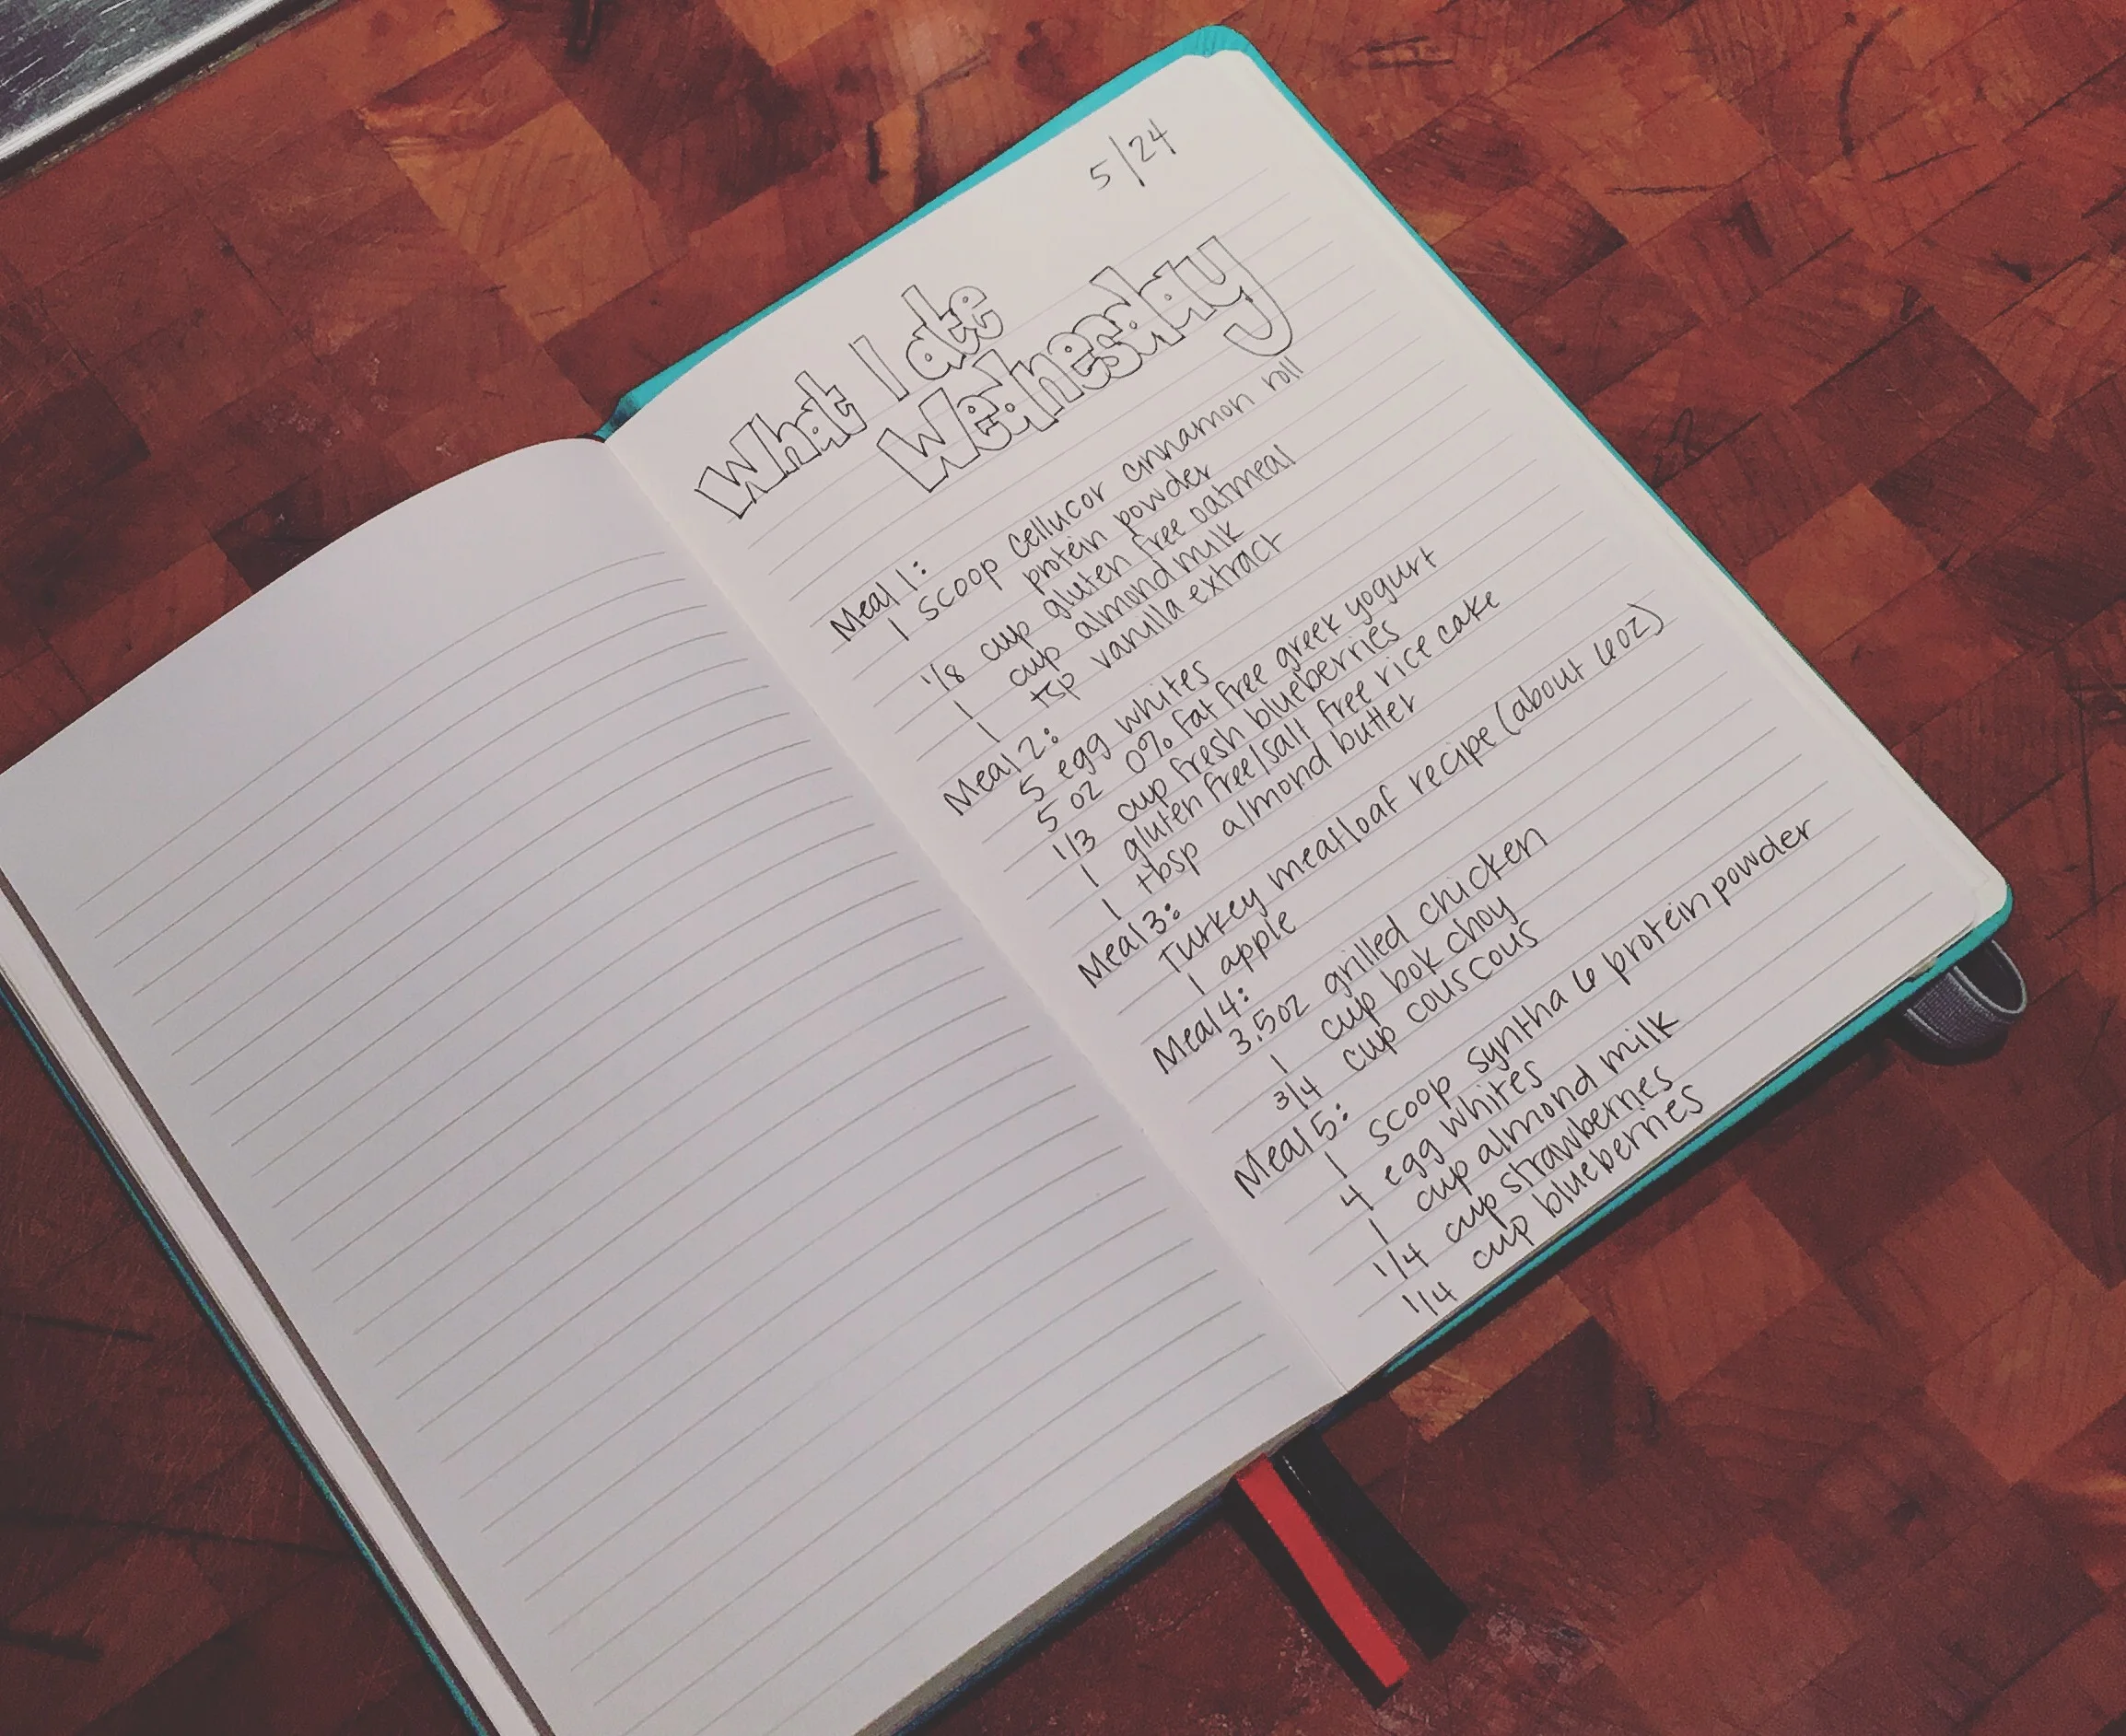 5/24
What I ate
Wednesday
Meal 1:
1 scoop cellucor cinnamon roll
protein powder
1/8 cup gluten free oatmeal
1 cup almond milk
1 tsp vanilla extract
Meal 2:
5 egg whites
5 oz 0% fat free greek yogurt
1/3 cup fresh blueberries
1 gluten free/salt free rice cake
1 tbsp almond butter
Meal 3:
Turkey meatloaf recipe (about 6oz)
1 apple
Meal 4:
3.5oz grilled chicken
1 cup bok choy
3/4 cup couscous
Meal 5:
1 scoop syntha 6 protein powder
4 egg whites
1 cup almond milk
1/4 cup strawberries
1/4 cup blueberries